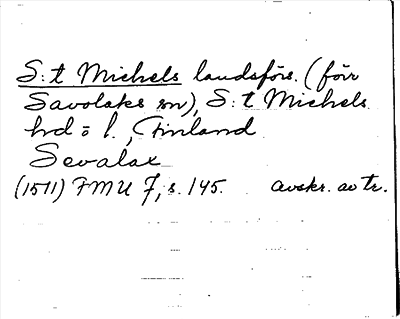 S:t Michels landsförs. (förr
Savolaks sn), S:t Michels
hd o l., Finland
Sevalax
(1511) FMU 7, s. 145. avskr. av tr.